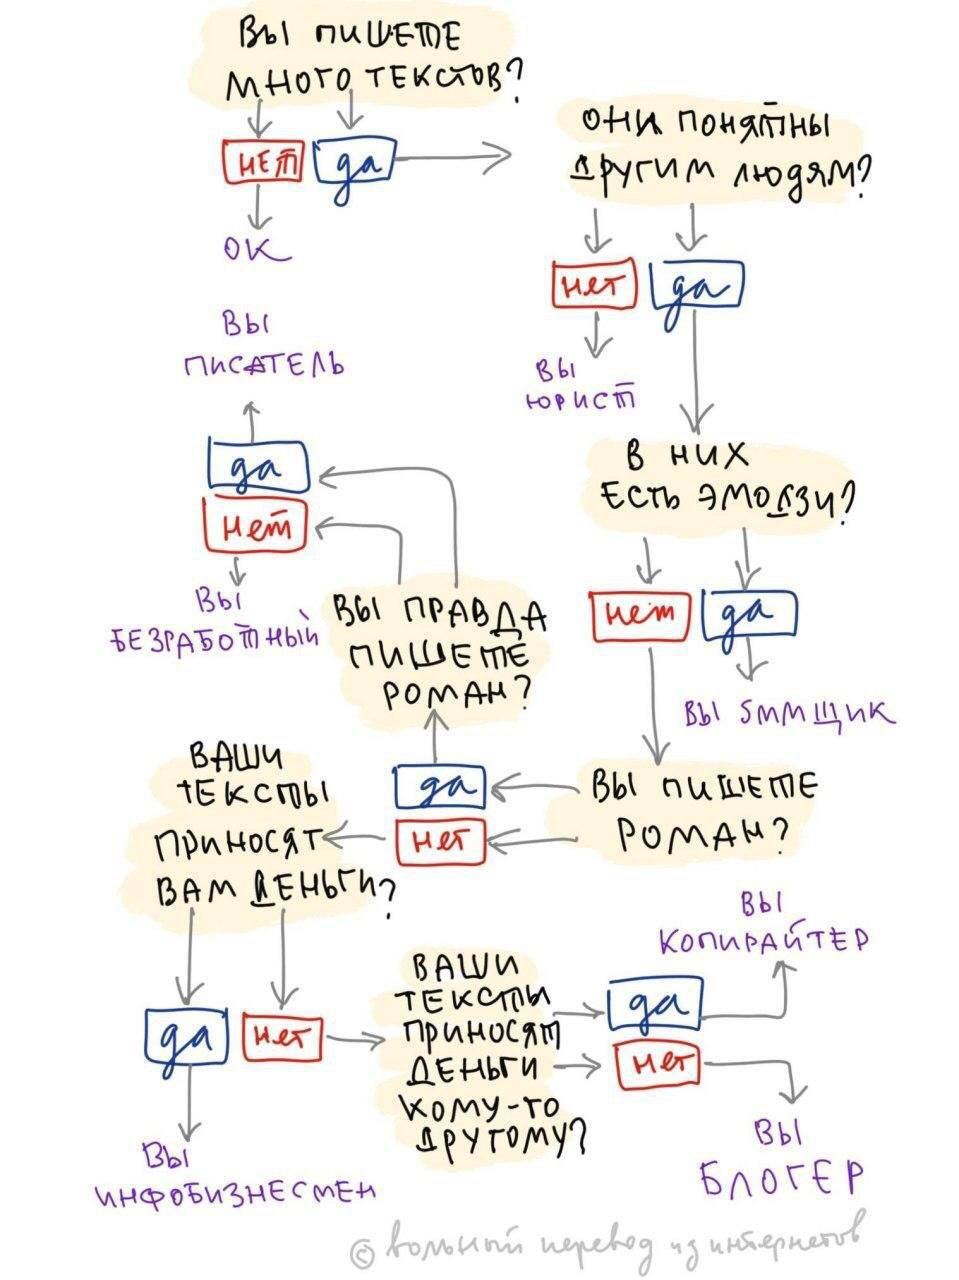 ВЫ ПИШЕТЕ
МНОГО ТЕКСТОВ?
нет
да
ОК
ОНИ ПОНЯТНЫ
ДРУГИМ ЛЮДЯМ?
нет
да
ВЫ
ЮРИСТ
В НИХ
ЕСТЬ ЭМОДЗИ?
нет
да
ВЫ SMMЩИК
ВЫ ПИШЕТЕ
РОМАН?
да
нет
ВЫ ПРАВДА
ПИШЕТЕ
РОМАН?
да
нет
ВЫ
ПИСАТЕЛЬ
ВЫ
БЕЗРАБОТНЫЙ
ВАШИ
ТЕКСТЫ
ПРИНОСЯТ
ВАМ ДЕНЬГИ?
да
нет
ВЫ
ИНФОБИЗНЕСМЕН
ВАШИ
ТЕКСТЫ
ПРИНОСЯТ
ДЕНЬГИ
КОМУ-ТО
ДРУГОМУ?
да
нет
ВЫ
КОПИРАЙТЕР
ВЫ
БЛОГЕР
© вольный перевод из интернетов